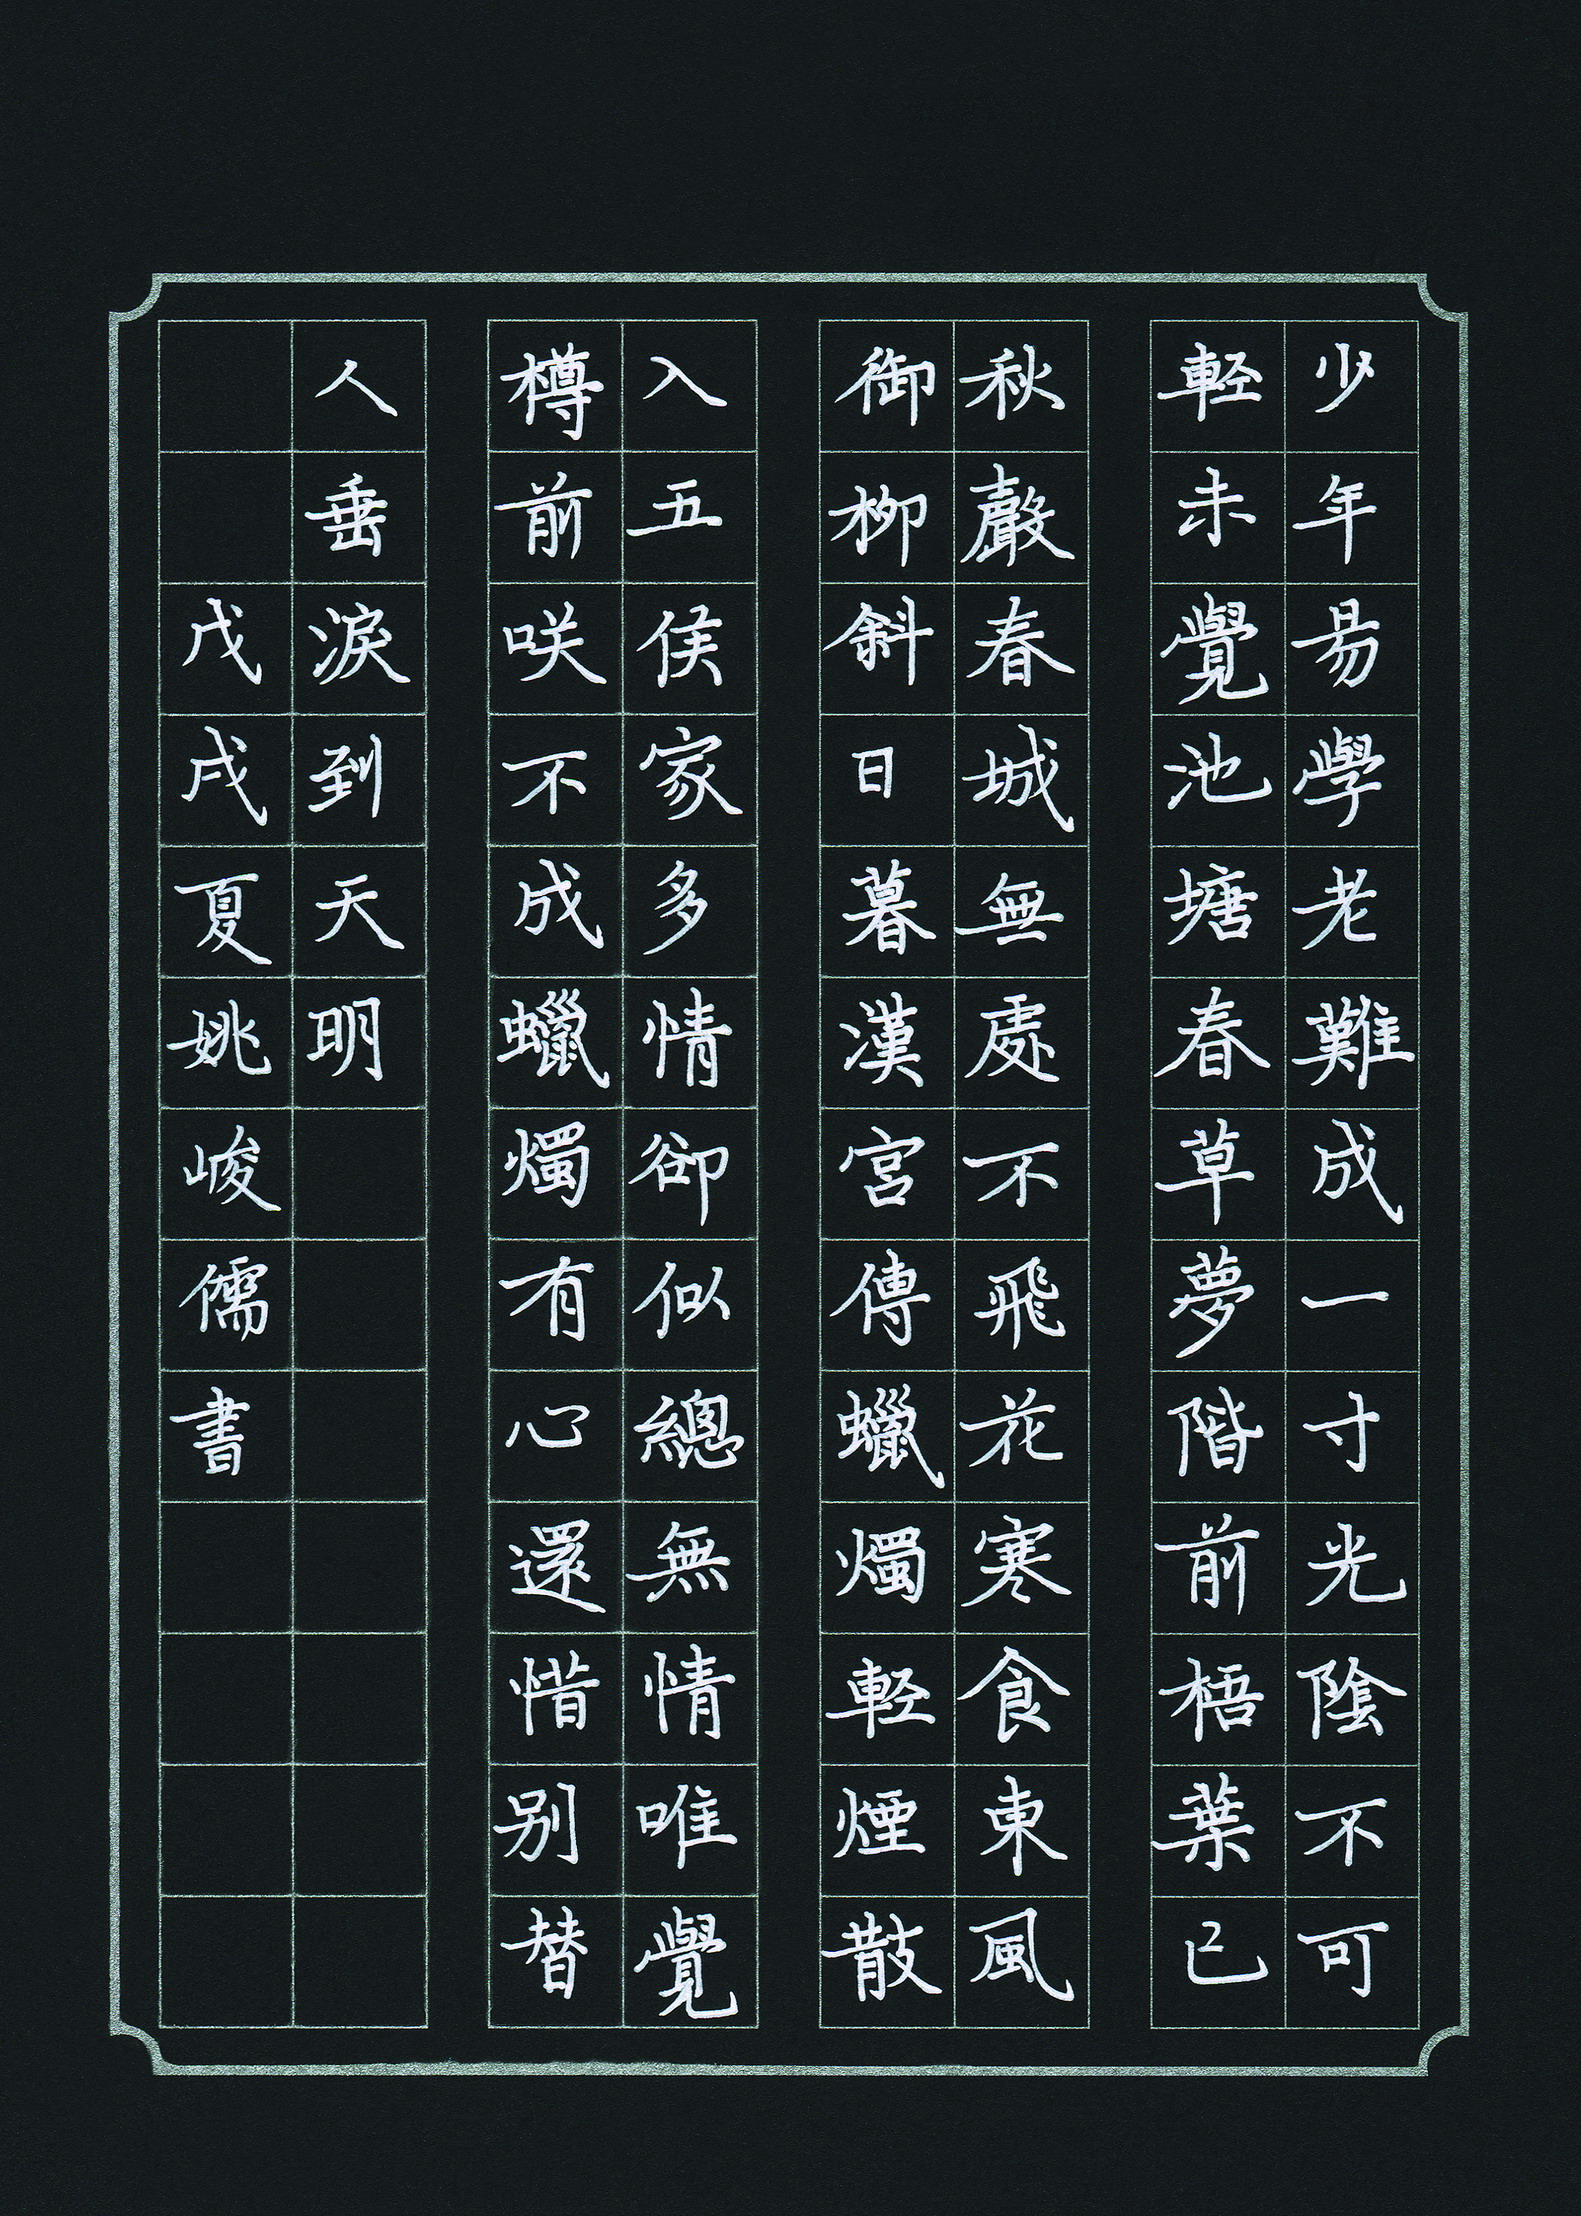 少年易學老難成一寸光陰不可
輕未覺池塘春草夢階前梧葉已
秋聲春城無處不飛花寒食東風
御柳斜日暮漢宮傳蠟燭輕煙散
入五侯家多情卻似總無情唯覺
樽前咲不成蠟燭有心還惜別替
人垂淚到天明
戊戌夏姚峻儒書